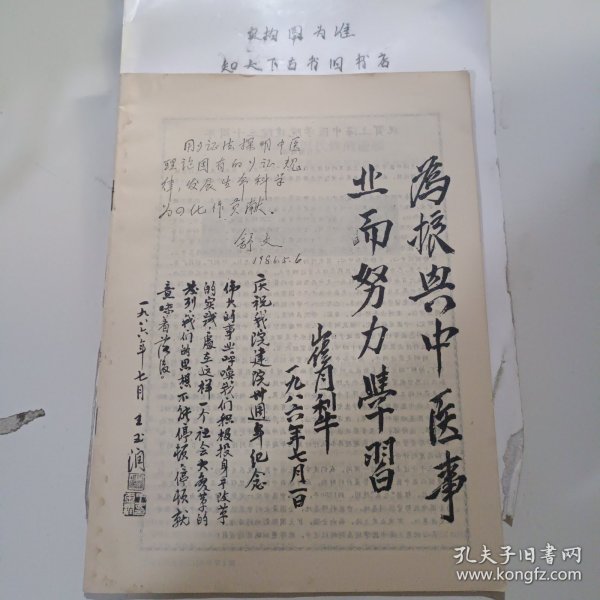 实物图为准
知天下古书旧书店
用多证法探明中医
理论固有的多证规
律，发展生命科学
为四化作贡献。
舒文
1986.5.6
为振兴中医事
业而努力學習
崔月犁
一九八六年七月一日
庆祝我院建院卅週年纪念
伟大的事业呼唤我们积极投身于改革
的实践，处在这样一个社会大变革的
时刻，我们的思想不能停顿，停顿就
意味着落后。
一九八六年七月 王玉润
孔夫子旧书网
www.kongfz.com